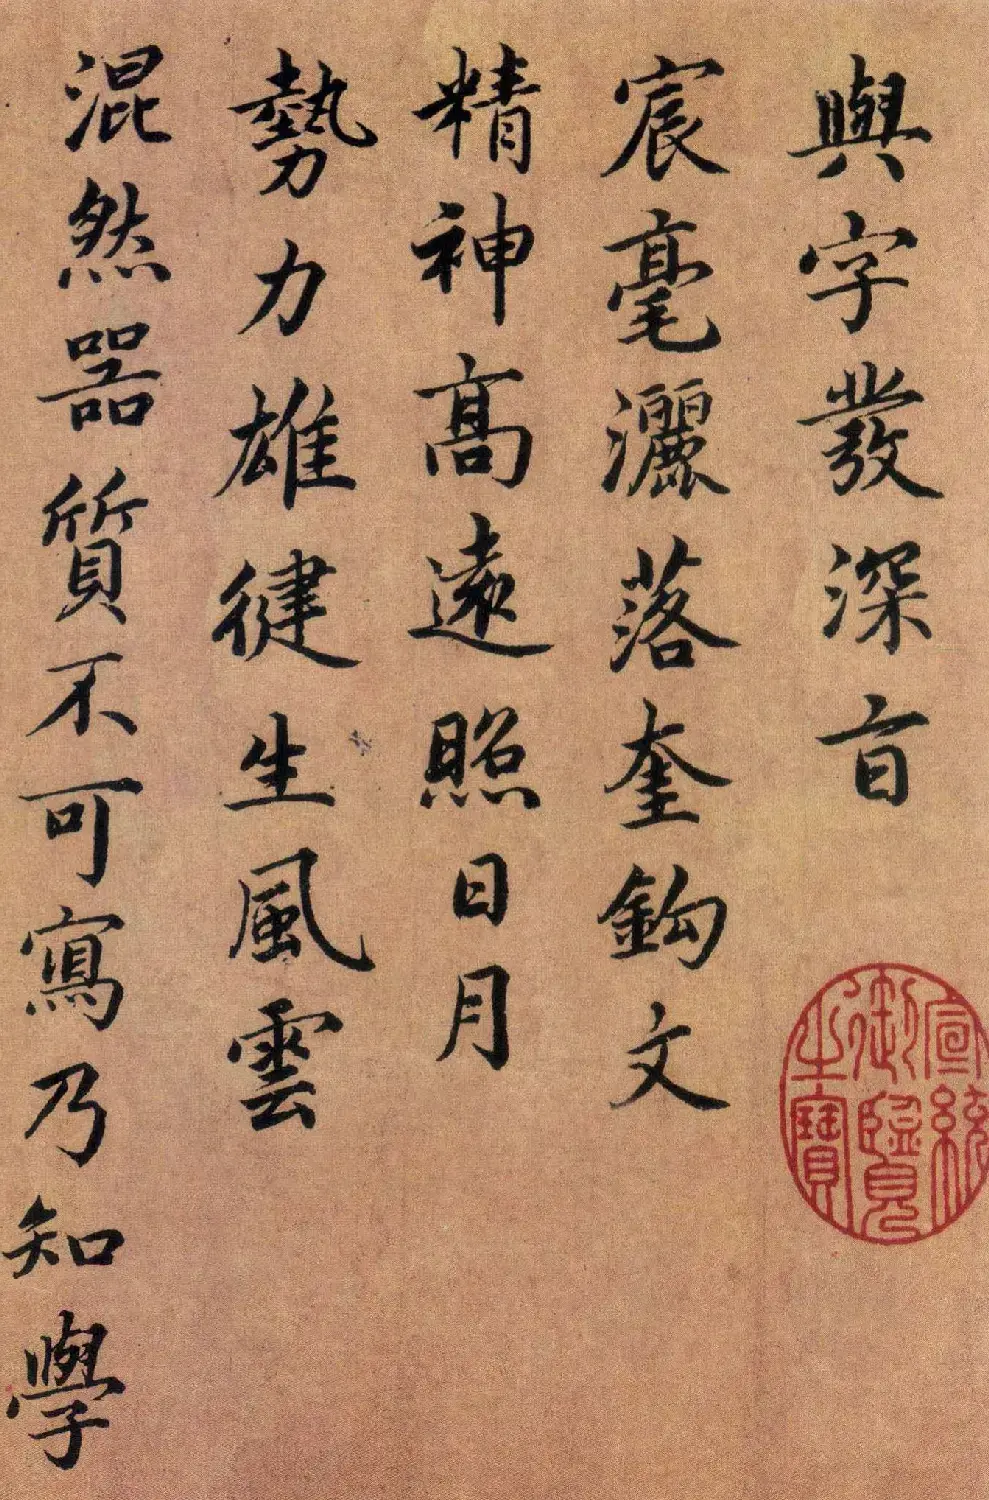 與字發深盲
宸毫灑落奎鈎文
精神高遠照日月
勢力雄健生風雲
混然器質不可寫乃知學
宣統
御覽
之寶